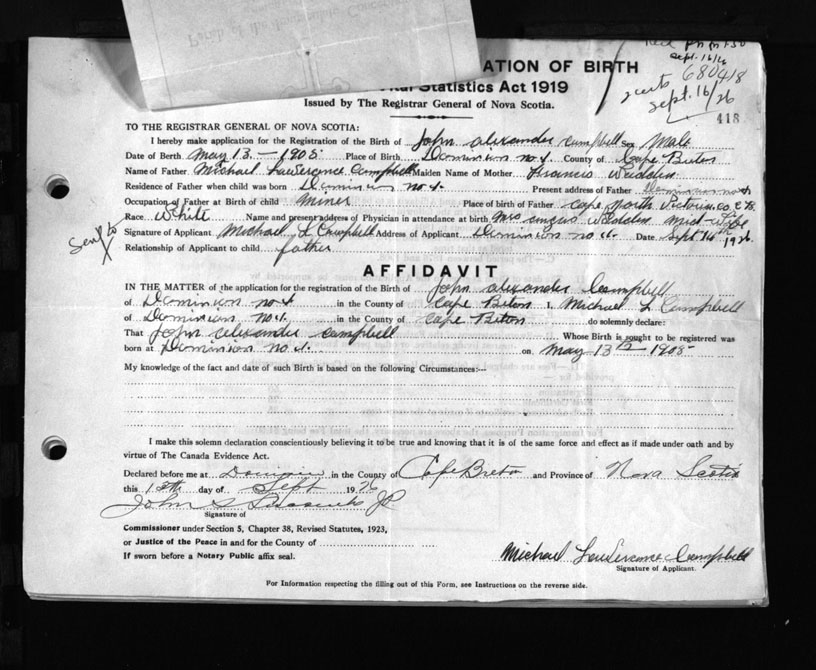 ATION OF BIRTH
Statistics Act 1919
Issued by The Registrar General of Nova Scotia.
Sept. 16/26
680418
Sept. 16/26
418
TO THE REGISTRAR GENERAL OF NOVA SCOTIA:
I hereby make application for the Registration of the Birth of John alexander campbell Sex Male
Date of Birth May 13. - 1905 Place of Birth Dominion no 4. County of Cape Breton
Name of Father Michael Campbell Maiden Name of Mother Francis
Residence of Father when child was born Dominion no 4. Present address of Father Dominion no 4
Occupation of Father at Birth of child miner Place of birth of Father Cape North Victoria Co C B.
Race White Name and present address of Physician in attendance at birth Mrs angus
Sent to
Signature of Applicant Michael L Campbell Address of Applicant Dominion no 4. Date Sept 14th 1926
Relationship of Applicant to child father
AFFIDAVIT
IN THE MATTER of the application for the registration of the Birth of John alexander Campbell
of Dominion no 4 in the County of Cape Breton I, Michael L Campbell
of Dominion no 4. in the County of Cape Breton do solemnly declare:
That John alexander campbell Whose Birth is sought to be registered was
born at Dominion no 4. on May 13th 1905
My knowledge of the fact and date of such Birth is based on the following Circumstances:—
I make this solemn declaration conscientiously believing it to be true and knowing that it is of the same force and effect as if made under oath and by
virtue of The Canada Evidence Act.
Declared before me at in the County of Cape Breton and Province of Nova Scotia
this day of Sept 1926
John S JP
Signature of
Commissioner under Section 5, Chapter 38, Revised Statutes, 1923,
or Justice of the Peace in and for the County of
If sworn before a Notary Public affix seal.
Michael Campbell
Signature of Applicant.
For Information respecting the filling out of this Form, see Instructions on the reverse side.